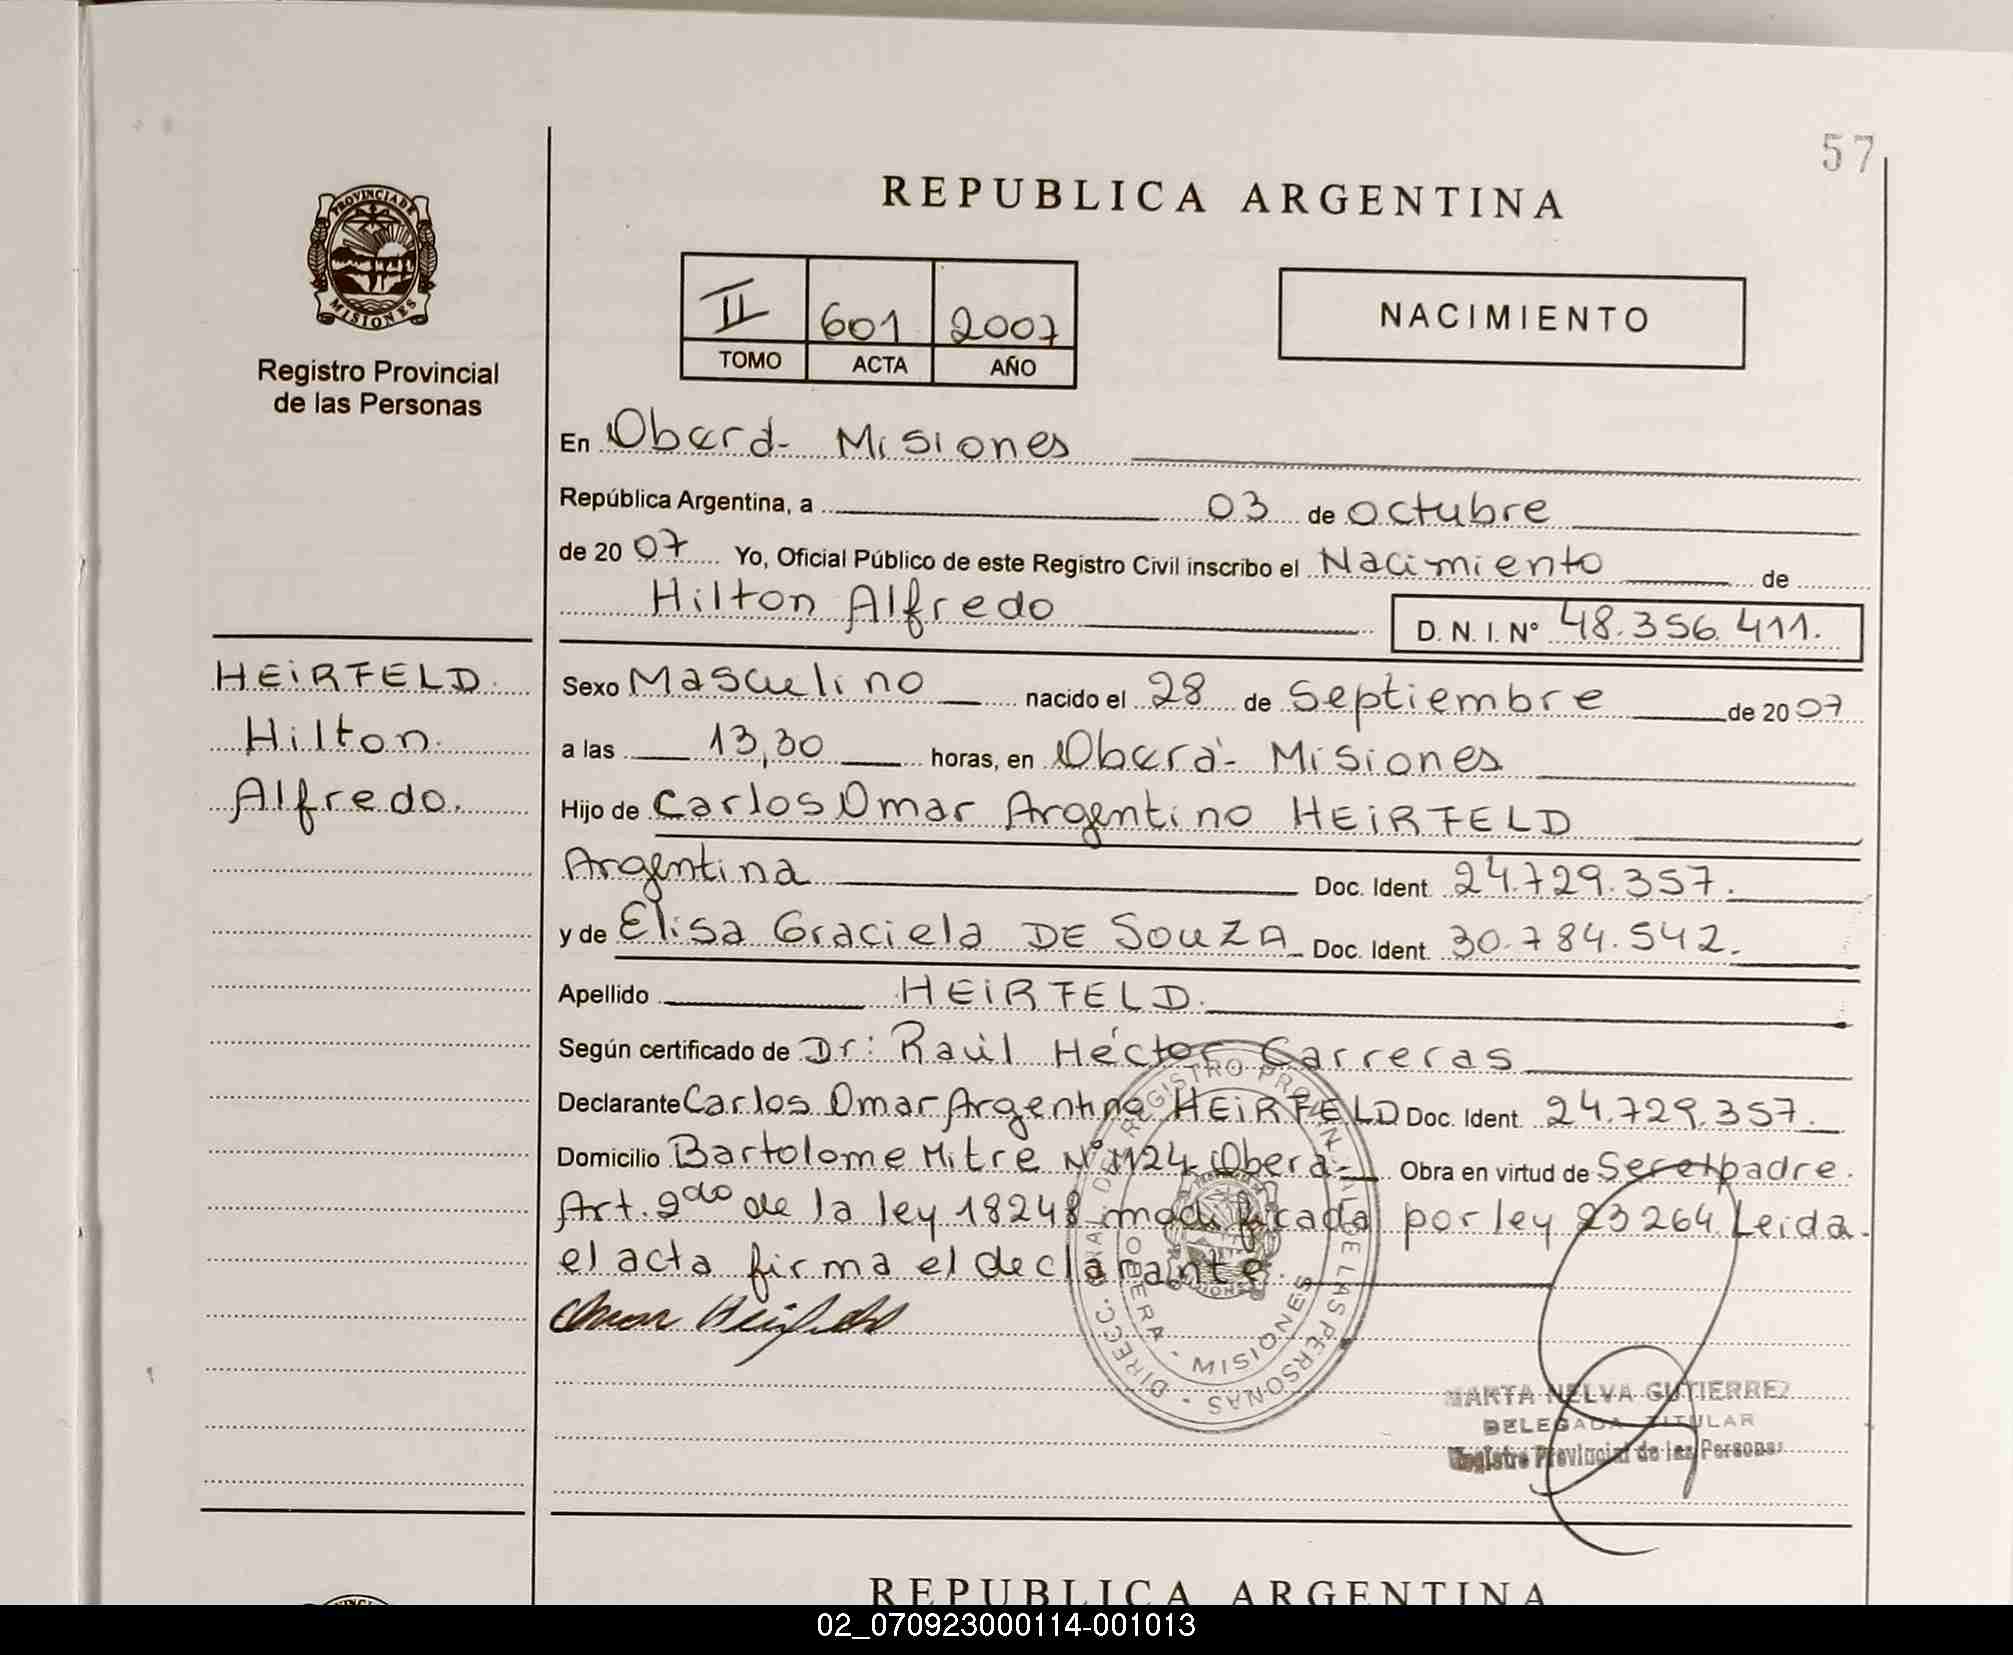 57
REPUBLICA ARGENTINA
PROVINCIA DE
MISIONES
Registro Provincial
de las Personas
II 601 2007
TOMO ACTA AÑO
NACIMIENTO
En Oberá - Misiones
República Argentina, a 03 de octubre
de 2007 Yo, Oficial Público de este Registro Civil inscribo el Nacimiento de
Hilton Alfredo D. N. I. Nº 48.356.411.
HEiRFELD
Hilton
Alfredo.
Sexo Masculino nacido el 28 de Septiembre de 2007
a las 13,30 horas, en Oberá - Misiones
Hijo de Carlos Omar Argentino HEiRFELD
Argentina Doc. Ident. 24.729.357.
y de Elisa Graciela DE SOUZA Doc. Ident. 30.784.542.
Apellido HEiRFELD.
Según certificado de Dr: Raúl Héctor Carreras
Declarante Carlos Omar Argentino HEiRFELD Doc. Ident. 24.729.357.
Domicilio Bartolome Mitre Nº 1124 Oberá - Obra en virtud de Ser el padre.
Art. 2do de la ley 18248 modificada por ley 23264. Leida
el acta firma el declarante.
Omar Heirfeld
DIRECC. GRAL DEL REGISTRO PROVINCIAL DE LAS PERSONAS
OBERA - MISIONES
MARTA NELVA GUTIERREZ
DELEGADA TITULAR
Registro Provincial de las Personas
REPUBLICA ARGENTINA
02_070923000114-001013